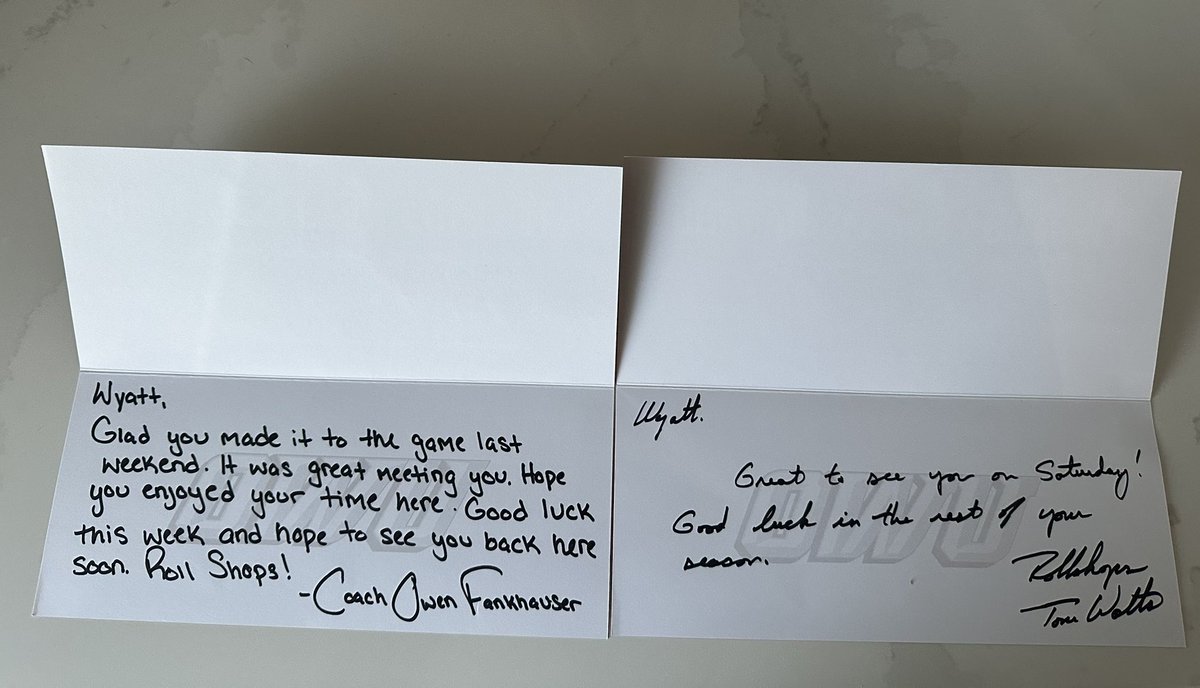 Wyatt,
Glad you made it to the game last
weekend. It was great meeting you. Hope
you enjoyed your time here. Good luck
this week and hope to see you back here
soon. Roll Shops!
-Coach Owen Fankhauser
OWU
Wyatt.
Great to see you on Saturday!
Good luck in the rest of your
season.
Rollshops
Tom Watts
OWU